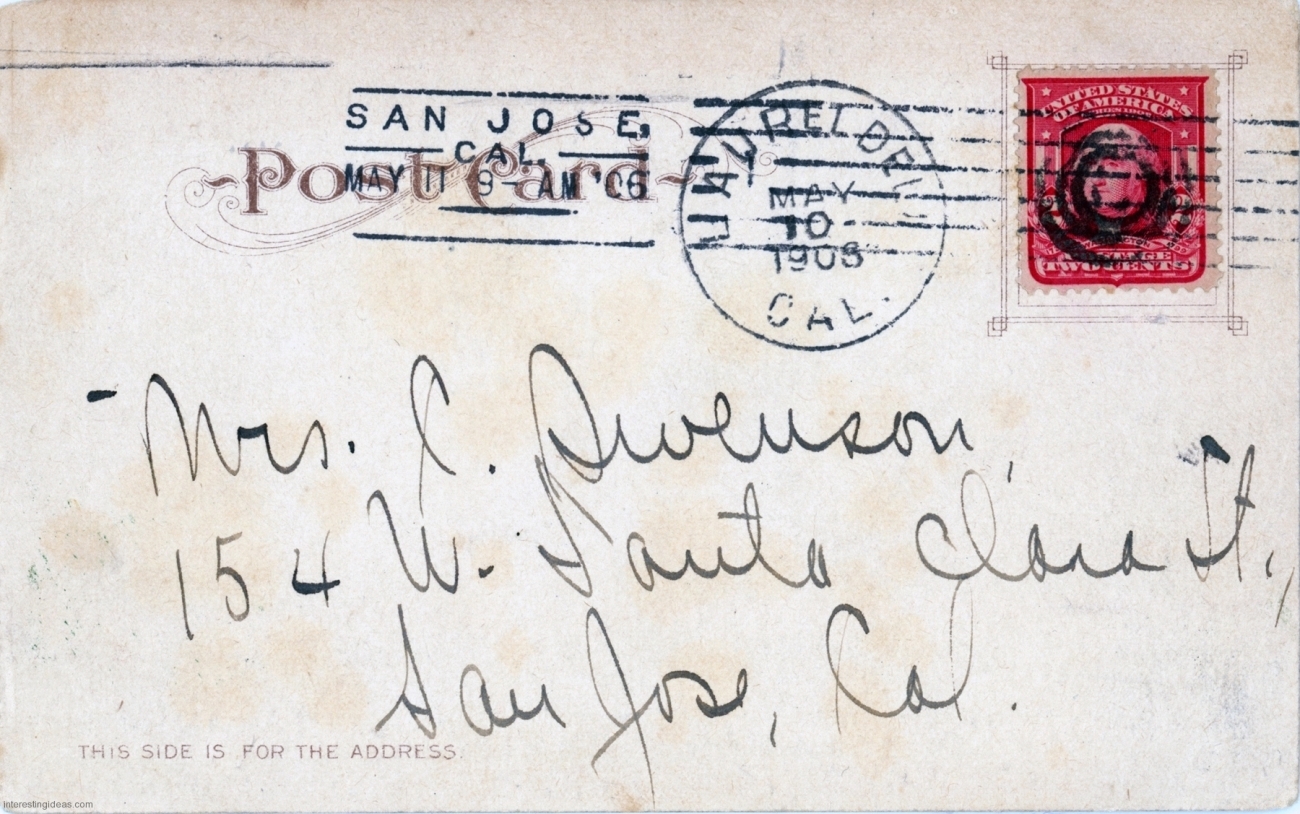 SAN JOSE,
CAL.
MAY 11 9-AM '06
Post Card
MAY
10
CAL.
UNITED STATES
OF AMERICA
TWO CENTS
Mrs. C. Swenson,
154 W. Santa Clara St.,
San Jose, Cal.
THIS SIDE IS FOR THE ADDRESS.
Interestingideas.com